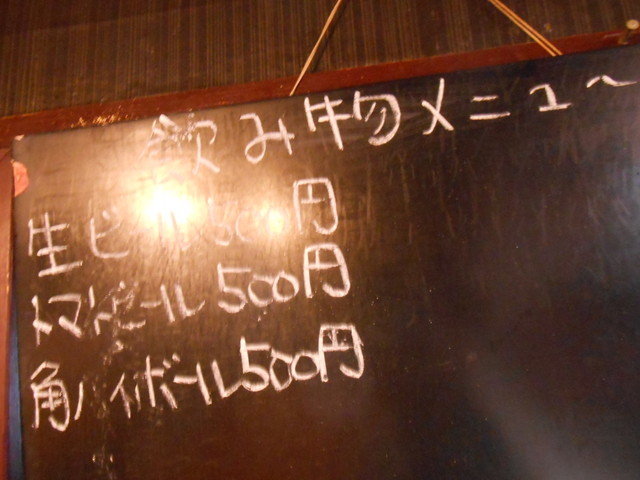 飲み物メニュ〜
生ビール500円
トマトビール500円
角ハイボール500円